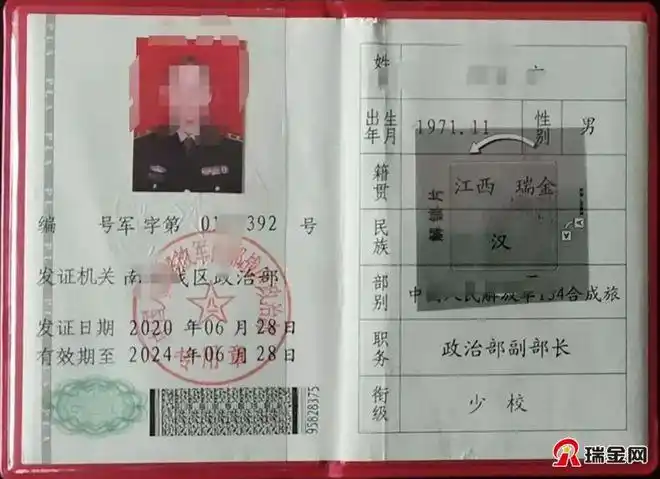 编 号军 字第 01 392 号
发证机关 南 战区政治部
发证日期 2020 年 06 月 28 日
有效期至 2024 年 06 月 28 日
专用章
95828375
姓
出生年月 1971.11 性别 男
籍贯 江西 瑞金
民族 汉
部别 中 人民解放军134合成旅
职务 政治部副部长
衔级 少校
瑞金网